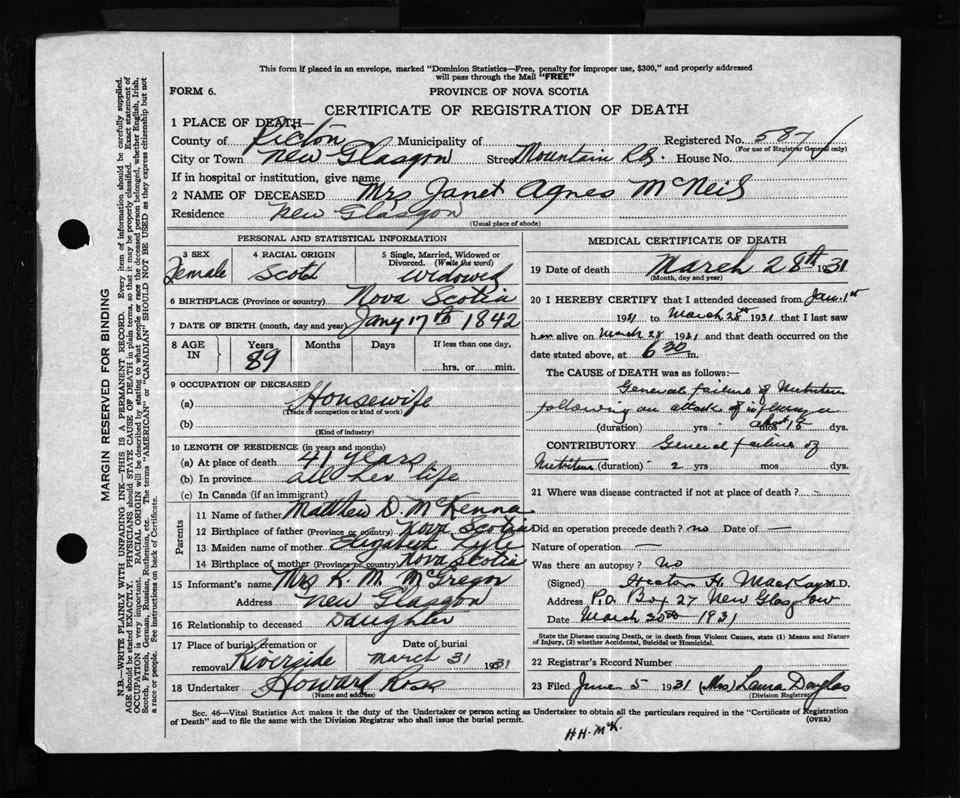 This form if placed in an envelope, marked "Dominion Statistics—Free, penalty for improper use, $300," and properly addressed
will pass through the Mail "FREE"
FORM 6. PROVINCE OF NOVA SCOTIA
CERTIFICATE OF REGISTRATION OF DEATH
1 PLACE OF DEATH—
County of Pictou Municipality of Registered No. 587
(For use of Registrar General only)
City or Town New Glasgow Street Mountain Rd. House No.
If in hospital or institution, give name
2 NAME OF DECEASED Mrs Janet Agnes McNeil
Residence New Glasgow
(Usual place of abode)
PERSONAL AND STATISTICAL INFORMATION
3 SEX 4 RACIAL ORIGIN 5 Single, Married, Widowed or Divorced. (Write the word)
Female Scotch Widowed
6 BIRTHPLACE (Province or country) Nova Scotia
7 DATE OF BIRTH (month, day and year) Jany 17th 1842
8 AGE IN Years Months Days If less than one day,
89 hrs. or min.
9 OCCUPATION OF DECEASED
(a) Housewife
(Trade or occupation or kind of work)
(b)
(Kind of industry)
10 LENGTH OF RESIDENCE (in years and months)
(a) At place of death 41 years
(b) In province all her life
(c) In Canada (if an immigrant)
Parents
11 Name of father Matthew D. McKenna
12 Birthplace of father (Province or country) Nova Scotia
13 Maiden name of mother Elizabeth Kyle
14 Birthplace of mother (Province or country) Nova Scotia
15 Informant's name Mrs K. M. McGregor
Address New Glasgow
16 Relationship to deceased Daughter
17 Place of burial, cremation or removal Riverside Date of burial March 31 1931
18 Undertaker Howard Ross
(Name and address)
MEDICAL CERTIFICATE OF DEATH
19 Date of death March 28th 1931
(Month, day and year)
20 I HEREBY CERTIFY that I attended deceased from Jan. 1st
1931 to March 28th 1931 that I last saw
her alive on March 28 1931 and that death occurred on the
date stated above, at 6 30 m.
The CAUSE OF DEATH was as follows:—
General failure of Nutrition
following an attack of influenza
(duration) yrs mos about 15 dys.
CONTRIBUTORY General failure of
Nutrition (duration) 2 yrs mos dys.
21 Where was disease contracted if not at place of death?
Did an operation precede death? no Date of —
Nature of operation —
Was there an autopsy? No
(Signed) Hector H. MacKay M.D.
Address P.O. Box 27 New Glasgow
Date March 30th 1931
State the Disease causing Death, or in death from Violent Causes, state (1) Means and Nature
of Injury, (2) whether Accidental, Suicidal or Homicidal.
22 Registrar's Record Number
23 Filed June 5 1931 (Mrs) Laura Douglas
(Division Registrar)
Sec. 46—Vital Statistics Act makes it the duty of the Undertaker or person acting as Undertaker to obtain all the particulars required in the "Certificate of Registration
of Death" and to file the same with the Division Registrar who shall issue the burial permit. (OVER)
HH. McK.
MARGIN RESERVED FOR BINDING
N.B.—WRITE PLAINLY WITH UNFADING INK—THIS IS A PERMANENT RECORD. Every item of information should be carefully supplied.
AGE should be stated EXACTLY. PHYSICIANS should STATE CAUSE OF DEATH in plain terms, so that it may be properly classified. Exact statement of
OCCUPATION is very important. RACIAL ORIGIN will be described by stating to what people or race the deceased person belonged, whether English, Irish,
Scotch, French, German, Russian, Ruthenian, etc. The terms "AMERICAN" or "CANADIAN" SHOULD NOT BE USED as they express citizenship but not
a race or people. See instructions on back of Certificate.